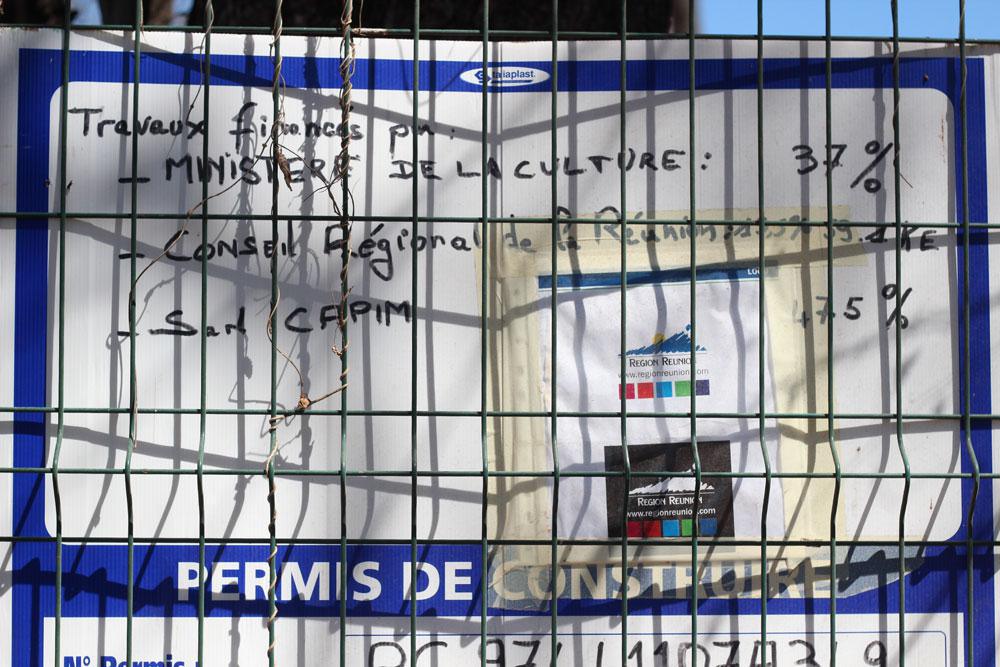 taliaplast.
Travaux financés par:
- MINISTERE DE LA CULTURE : 37 %
- Conseil Régional de la Réunion: KE
- Sarl CAPIM 47,5 %
REGION REUNION
www.regionreunion.com
REGION REUNION
www.regionreunion.com
PERMIS DE CONSTRUIRE
N° Permis :